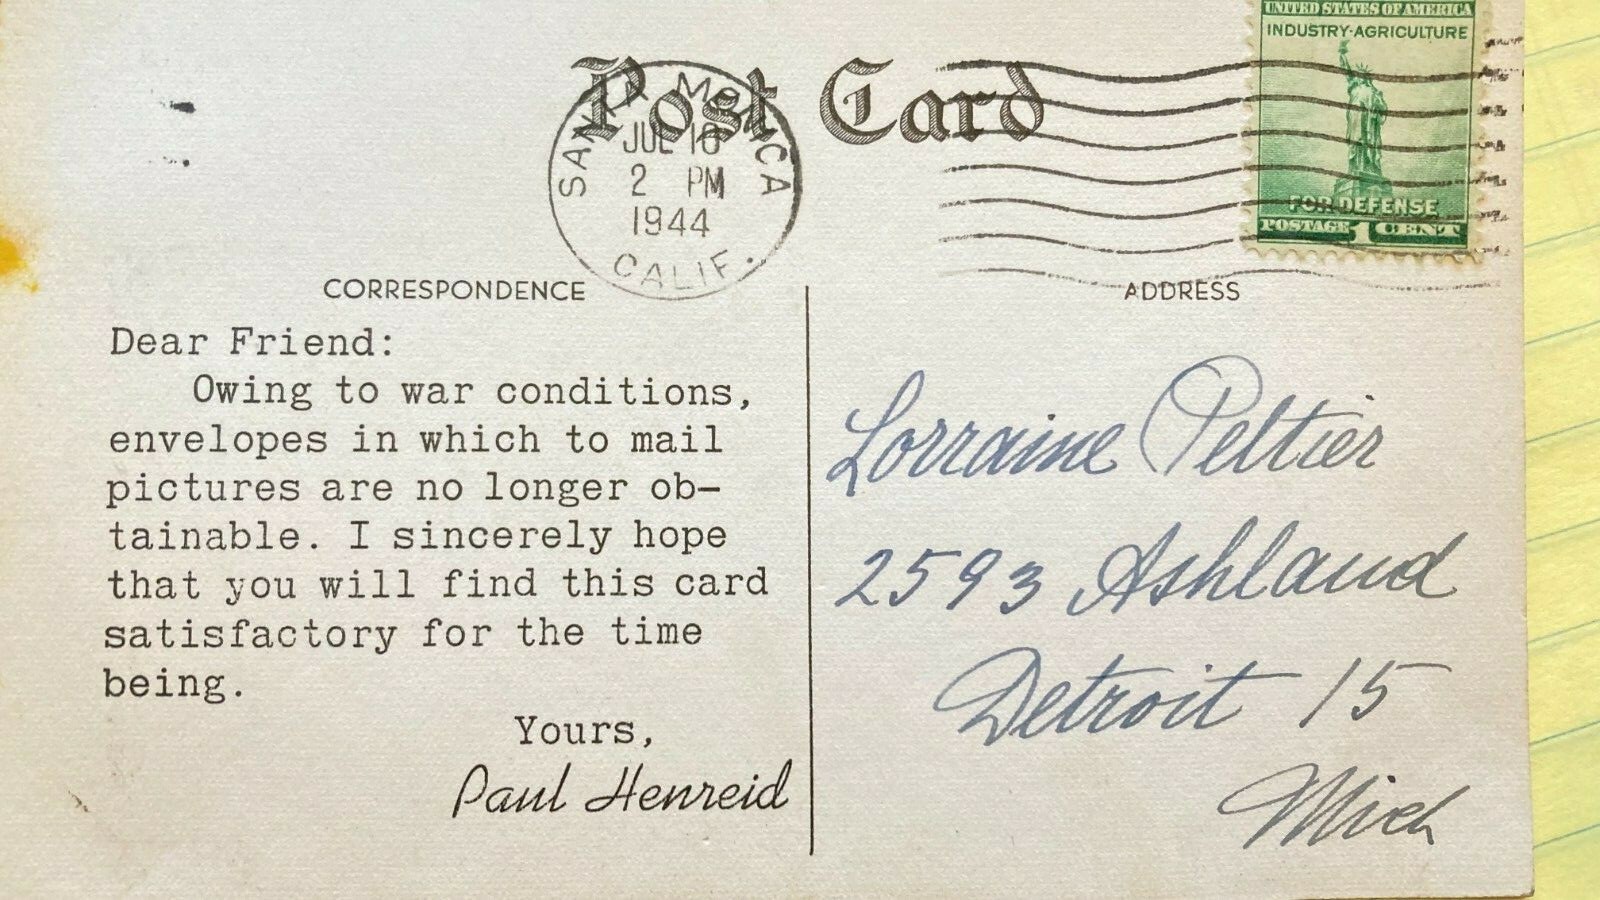 UNITED STATES OF AMERICA
INDUSTRY·AGRICULTURE
FOR DEFENSE
POSTAGE 1 CENT
Post Card
SANTA MONICA
JUL 18
2 PM
1944
CALIF.
CORRESPONDENCE
Dear Friend:
Owing to war conditions,
envelopes in which to mail
pictures are no longer ob-
tainable. I sincerely hope
that you will find this card
satisfactory for the time
being.
Yours,
Paul Henreid
ADDRESS
Lorraine Peltier
2593 Ashland
Detroit 15
Mich